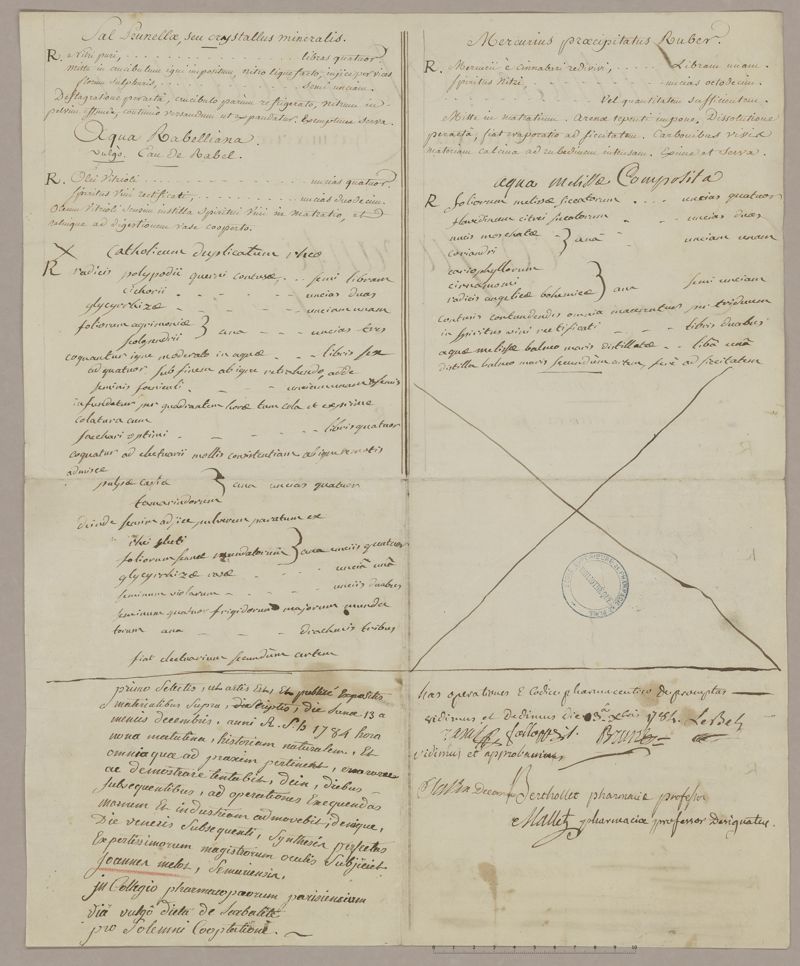 Sal Prunellæ, seu crystallus mineralis.
R. Nitri puri, . . . . . . . . . . libras quatuor.
Mitte in crucibulum igni impositum, nitro liquefacto, injice per vices
florum sulphuris, . . . . . . . . . . Semi unciam.
Deflagratione peractâ, crucibulo parum refrigerato, nitrum in
pelvim effunde, continuo versandum ut expandatur. Exemptum serva.
Aqua Rabelliana.
vulgò. Eau de Rabel.
R. Olei Vitrioli . . . . . . . . . . uncias quatuor.
Spiritus Vini rectificati, . . . . . . . . . . uncias duodecim.
Oleum Vitrioli sensim instilla Spiritui Vini in Matratio, et
relinque ad digestionem vase cooperto.
Catholicum duplicatum rheo
R radicis polypodii querni contusæ . . . semi libram
cichorii - - - - uncias duas
glycyrrhizæ - - - - unciam unam
foliorum agrimoniæ } ana - - - uncias tres
scolopendrii
coquantur igne moderato in aquæ - - - libris sex
ad quatuor sub finem ab igne retrahendo adde
seminis foeniculi - - - - unciam unam & semis
infundatur per quadrantem horæ tum cola et exprime
colatura cum
sacchari optimi - - - - libris quatuor
coquatur ad electuarii mollis consistentiam ab igne remotis
admisce
pulpæ casiæ } ana uncias quatuor
tamarindorum
deinde sensim adjice pulverem paratum ex
rhei electi
foliorum sennæ mundatorum } ana unciis quatuor
glycyrrhizæ rasæ - - - unciâ unâ
seminum violarum - - - - unciis duabus
seminum quatuor frigidorum majorum munda
torum ana - - - drachmis tribus
fiat electuarium secundùm artem
primo Selectio, ut artis est, Et publicè Expositis
materialibus Supra, descriptis, die Lunæ 13 a
mensis decembris, anni R. S. h 1784 hora
nona matutina, historiam naturalem, Et
omnia quæ ad praxim pertinent, enarrare
ac demonstrare tentabit, dein, diebus
subsequentibus, ad operationes Exequendas
manum et industriam admovebit, denique,
Die veneris Subsequenti, Synthesin perfectas
Expertissimorum magistrorum oculis Subjiciet
Joannes melot, Semuriensis,
in Collegio pharmacopæorum parisiensium
Viâ vulgò dictâ de Larbalête
pro Solemni Cooptatione.
Mercurius præcipitatus Ruber.
R. Mercurii è cinnabri redivivi, . . . . . Libram unam.
Spiritus Nitri, . . . . . . . . . uncias octodecim.
. . . . . . . . . Vel quantitatem sufficientem.
Mitte in matratium. Arenæ repenti impone, Dissolutione
peracta, fiat evaporatio ad siccitatem. Carbonibus vivis
materiam calcina ad rubedinem intensam. Exime et serva.
aqua melissæ Composita
R foliorum melissæ siccatorum . . . . uncias quatuor
flavedinum citri siccatorum - - uncias duas
nucis moschatæ } anâ - - unciam unam
coriandri
cariophyllorum
cinnamomi } ana semi unciam
radicis angelicæ bohemicæ
contusis contundendis omnia macerentur per triduum
in spiritus vini rectificati - - - libris duabus
aquæ melissæ balneo maris distillatæ - - libra unâ
distilla balneo maris secundùm artem, ferè ad siccitatem
has operationes E Codice pharmaceutico depromptas
vidimus et Dedimus die 13â Xbris 1784. LeBel
Brun
vidimus et approbavimus
Berthollet pharmaciæ professor
Mallet pharmacia professor Designatus.
0 1 2 3 4 5 6 7 8 9 10